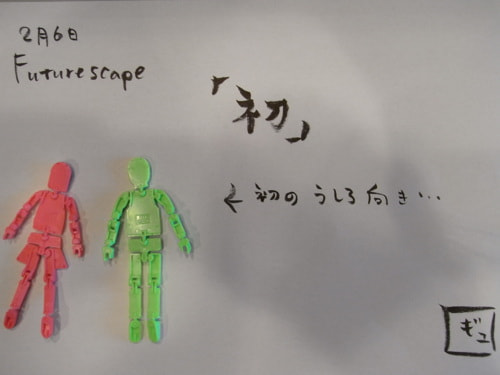 2月6日
Futurescape
「初」
← 初のうしろ向き…
ギュ